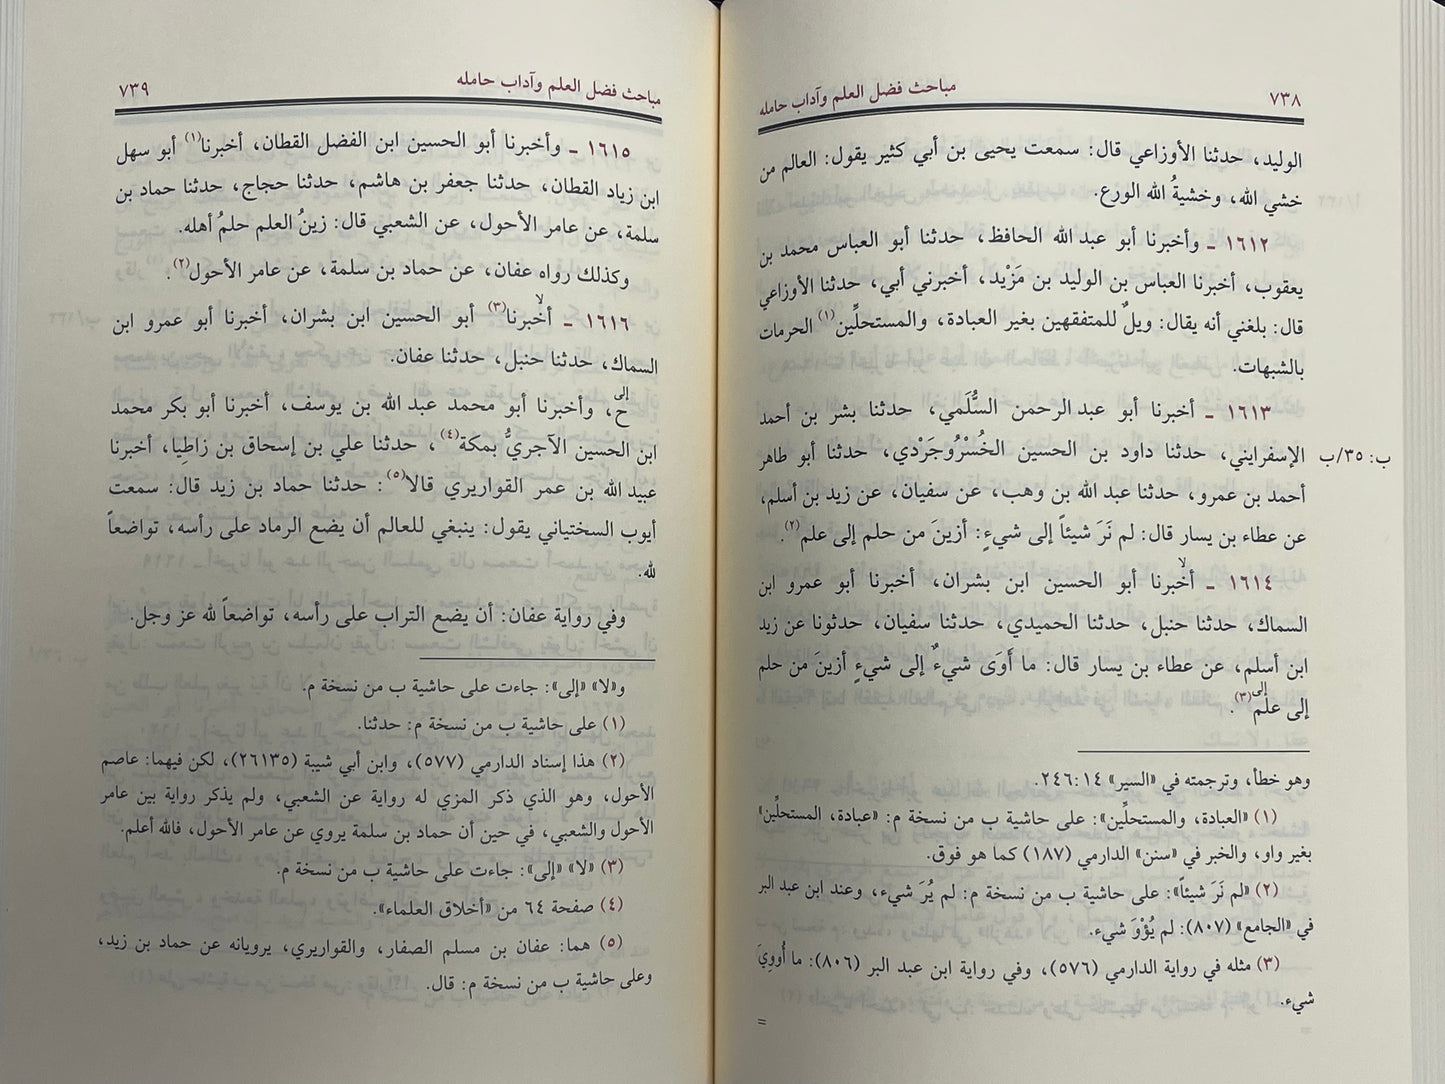 ٧٣٨ مباحث فضل العلم وآداب حامله
الوليد، حدثنا الأوزاعي قال: سمعت يحيى بن أبي كثير يقول: العالم من
خشي الله، وخشيةُ الله الورع.
١٦١٢ ـ وأخبرنا أبو عبد الله الحافظ، حدثنا أبو العباس محمد بن
يعقوب، أخبرنا العباس بن الوليد بن مَزْيد، أخبرني أبي، حدثنا الأوزاعي
قال: بلغني أنه يقال: ويلٌ للمتفقهين بغير العبادة، والمستحلِّين(١) الحرمات
بالشبهات.
١٦١٣ ـ أخبرنا أبو عبد الرحمن السُّلَمي، حدثنا بشر بن أحمد
ب: ٣٥/ب الإسفرايني، حدثنا داود بن الحسين الخُسْرُوجَرْدي، حدثنا أبو طاهر
أحمد بن عمرو، حدثنا عبد الله بن وهب، عن سفيان، عن زيد بن أسلم،
عن عطاء بن يسار قال: لم نَرَ شيئاً إلى شيءٍ: أزينَ من حلم إلى علم(٢).
١٦١٤ ـ أخبرنا لا أبو الحسين ابن بشران، أخبرنا أبو عمرو ابن
السماك، حدثنا حنبل، حدثنا الحميدي، حدثنا سفيان، حدثونا عن زيد
ابن أسلم، عن عطاء بن يسار قال: ما أَوَى شيءٌ إلى شيءٍ أزينَ من حلم
إلى علم إلى(٣).
وهو خطأ، وترجمته في «السير» ١٤: ٢٤٦.
(١) «العبادة، والمستحلِّين»: على حاشية ب من نسخة م: «عبادة، المستحلِّين»
بغير واو، والخبر في «سنن» الدارمي (١٨٧) كما هو فوق.
(٢) «لم نَرَ شيئاً»: على حاشية ب من نسخة م: لم يُرَ شيء، وعند ابن عبد البر
في «الجامع» (٨٠٧): لم يُؤْوَ شيء.
(٣) مثله في رواية الدارمي (٥٧٦)، وفي رواية ابن عبد البر (٨٠٦): ما أُوويَ
شيء.
=
مباحث فضل العلم وآداب حامله ٧٣٩
١٦١٥ ـ وأخبرنا أبو الحسين ابن الفضل القطان، أخبرنا(١) أبو سهل
ابن زياد القطان، حدثنا جعفر بن هاشم، حدثنا حجاج، حدثنا حماد بن
سلمة، عن عامر الأحول، عن الشعبي قال: زينُ العلم حلمُ أهله.
وكذلك رواه عفان، عن حماد بن سلمة، عن عامر الأحول(٢).
١٦١٦ ـ أخبرنا لا(٣) أبو الحسين ابن بشران، أخبرنا أبو عمرو ابن
السماك، حدثنا حنبل، حدثنا عفان.
ح إلى، وأخبرنا أبو محمد عبد الله بن يوسف، أخبرنا أبو بكر محمد
ابن الحسين الآجريُّ بمكة(٤)، حدثنا علي بن إسحاق بن زاطِيا، أخبرنا
عبيد الله بن عمر القواريري قالا(٥): حدثنا حماد بن زيد قال: سمعت
أيوب السختياني يقول: ينبغي للعالم أن يضع الرماد على رأسه، تواضعاً
لله.
وفي رواية عفان: أن يضع التراب على رأسه، تواضعاً لله عز وجل.
و«لا» «إلى»: جاءت على حاشية ب من نسخة م.
(١) على حاشية ب من نسخة م: حدثنا.
(٢) هذا إسناد الدارمي (٥٧٧)، وابن أبي شيبة (٢٦١٣٥)، لكن فيهما: عاصم
الأحول، وهو الذي ذكر المزي له رواية عن الشعبي، ولم يذكر رواية بين عامر
الأحول والشعبي، في حين أن حماد بن سلمة يروي عن عامر الأحول، فالله أعلم.
(٣) «لا» «إلى»: جاءت على حاشية ب من نسخة م.
(٤) صفحة ٦٤ من «أخلاق العلماء».
(٥) هما: عفان بن مسلم الصفار، والقواريري، يرويانه عن حماد بن زيد،
وعلى حاشية ب من نسخة م: قال.